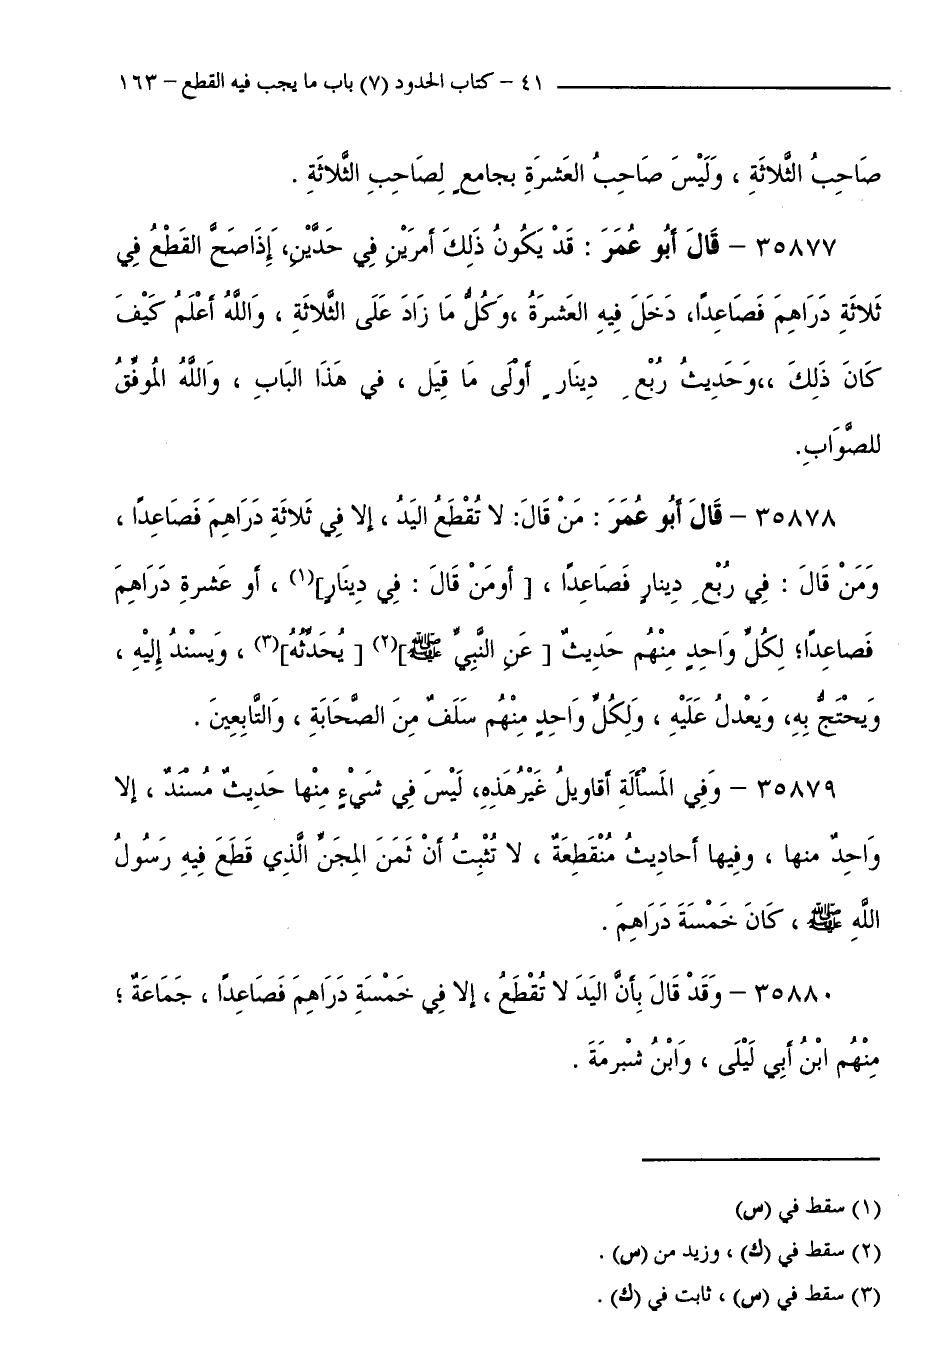 ٤١ – كتاب الحدود (٧) باب ما يجب فيه القطع – ١٦٣
صَاحِبُ الثَّلاثَةِ ، وَلَيْسَ صَاحِبُ العَشرَةِ بجامعٍ لِصَاحِبِ الثَّلاثَةِ .
٣٥٨٧٧ – قَالَ أَبُو عُمَرَ : قَدْ يَكُونُ ذَلِكَ أمرَيْنِ فِي حَدَّيْنِ، َإِذَاصَحَّ القَطْعُ فِي
ثَلاثَةِ دَرَاهِمَ فَصَاعِدًا، دَخَلَ فِيهِ العَشرَةُ ،وَكُلُّ مَا زَادَ عَلَى الثَّلاثَةِ ، وَاللَّهُ أعْلَمُ كَيْفَ
كَانَ ذَلِكَ ،،وَحَدِيثُ رُبْعِ دِينَارٍ أوْلَى مَا قِيَل ، في هَذَا البَابِ ، وَاللَّهُ المُوفِّقُ
للصَّوَابِ.
٣٥٨٧٨ – قَالَ أَبُو عُمَرَ : مَنْ قَالَ: لا تُقْطَعُ اليَدُ ، إلا فِي ثَلاثَةِ دَرَاهِمَ فَصَاعِدًا ،
وَمَنْ قَالَ : فِي رُبْعِ دِينارٍ فَصَاعِدًا ، [ أومَنْ قَالَ : فِي دِينَارٍ](١) ، أو عَشرةِ دَرَاهِمَ
فَصاعِدًا؛ لِكُلِّ وَاحِدٍ مِنْهُم حَدِيثٌ [ عَنِ النَّبِيِّ ﷺ](٢) [ يُحَدِّثُهُ](٣) ، وَيَسْندُ إِلَيْهِ ،
وَيَحْتَجُّ بِهِ، وَيَعْدلُ عَلَيْهِ ، وَلِكُلِّ وَاحِدٍ مِنْهُم سَلَفٌ مِنَ الصَّحَابَةِ ، وَالتَّابِعِينَ .
٣٥٨٧٩ – وَفِي المَسْأَلَةِ أقاويلُ غَيْرُهَذِهِ، لَيْسَ فِي شَيْءٍ مِنْها حَدِيثٌ مُسْنَدٌ ، إلا
وَاحِدٌ منها ، وفيها أحاديثُ مُنْقَطِعَةٌ ، لا تُثْبِتُ أنْ ثَمَنَ المِجَنِّ الَّذِي قَطَعَ فِيهِ رَسُولُ
اللَّهِ ﷺ ، كَانَ خَمْسَةَ دَرَاهِمَ .
٣٥٨٨٠ – وَقَدْ قَالَ بِأنَّ اليَدَ لا تُقْطَعُ ، إلا فِي خَمْسَةِ دَرَاهِمَ فَصَاعِدًا ، جَمَاعَةٌ ؛
مِنْهُم ابْنُ أبِي لَيْلَى ، وَابْنُ شبْرمَةَ .
(١) سقط في (س)
(٢) سقط في (ك) ، وزيد من (س) .
(٣) سقط في (س) ، ثابت في (ك) .